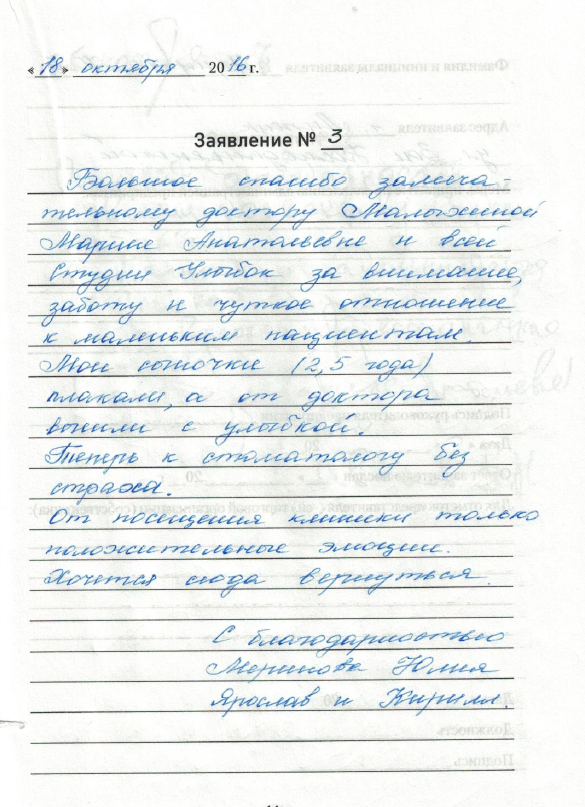 « 18 » октября 2016 г.
Заявление № 3
Большое спасибо замеча-
тельному доктору Малюжиной
Марине Анатольевне и всей
Студии Улыбок за внимание,
заботу и чуткое отношение
к маленьким пациентам.
Мои сыночки (2,5 года)
плакали, а от доктора
вышли с улыбкой.
Теперь к стоматологу без
страха.
От посещения клиники только
положительные эмоции.
Хочется сюда вернуться.
С благодарностью
Меринова Юлия
Ярослав и Кирилл.